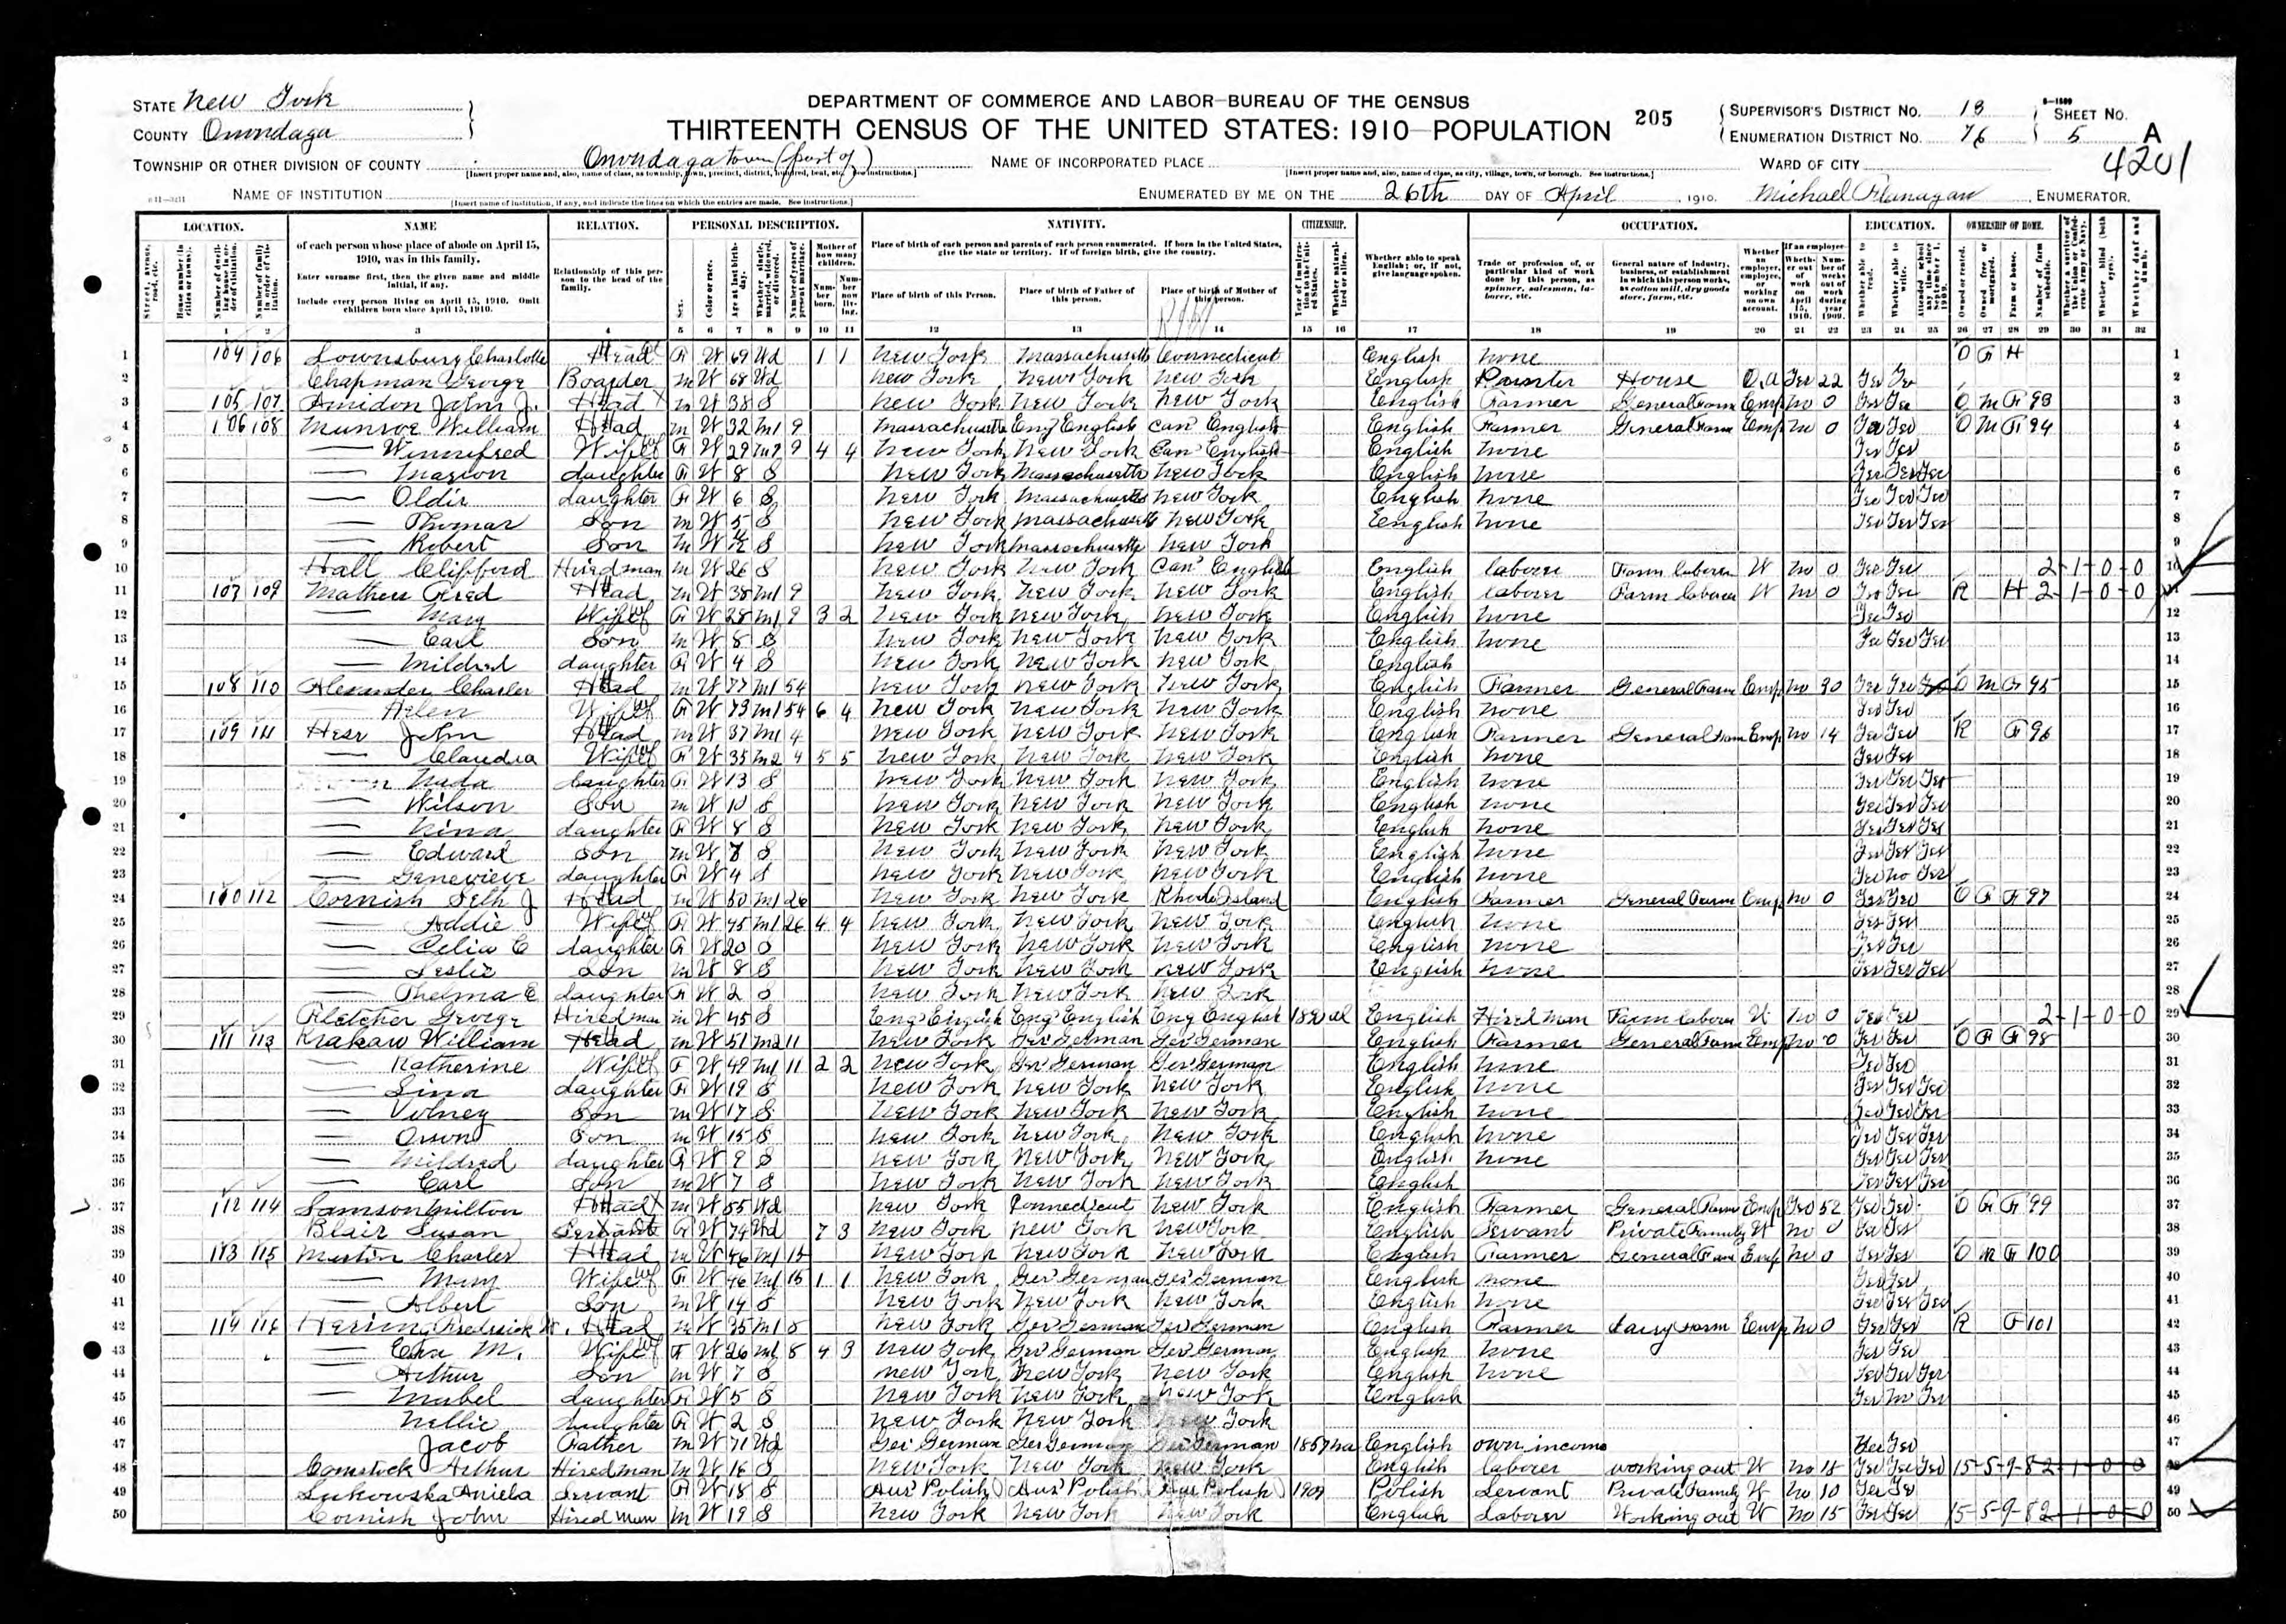 STATE New York
COUNTY Onondaga
DEPARTMENT OF COMMERCE AND LABOR—BUREAU OF THE CENSUS
THIRTEENTH CENSUS OF THE UNITED STATES: 1910—POPULATION
205
SUPERVISOR'S DISTRICT No. 18
ENUMERATION DISTRICT No. 76
SHEET No. 5 A
4201
TOWNSHIP OR OTHER DIVISION OF COUNTY Onondaga town (part of)
NAME OF INCORPORATED PLACE
WARD OF CITY
NAME OF INSTITUTION
ENUMERATED BY ME ON THE 26th DAY OF April, 1910. Michael Flanagan, ENUMERATOR.
LOCATION. NAME RELATION. PERSONAL DESCRIPTION. NATIVITY. CITIZENSHIP. OCCUPATION. EDUCATION. OWNERSHIP OF HOME.
of each person whose place of abode on April 15, 1910, was in this family.
Enter surname first, then the given name and middle initial, if any.
Include every person living on April 15, 1910. Omit children born since April 15, 1910.
Relationship of this person to the head of the family.
Place of birth of each person and parents of each person enumerated. If born in the United States, give the state or territory. If of foreign birth, give the country.
Place of birth of this Person. Place of birth of Father of this person. Place of birth of Mother of this person.
Whether able to speak English; or, if not, give language spoken.
1 2 3 4 5 6 7 8 9 10 11 12 13 14 15 16 17 18 19 20 21 22 23 24 25 26 27 28 29 30 31 32
1 104 106 Lownsbury Charlotte Head F W 69 Wd 1 1 New York Massachusetts Connecticut English None O F H 1
2 Chapman George Boarder M W 68 Wd New York New York New York English Painter House O.A Yes 22 Yes Yes 2
3 105 107 Amidon John J. Head M W 38 S New York New York New York English Farmer General Farm Emp No 0 Yes Yes O M F 93 3
4 106 108 Munroe William Head M W 32 M1 9 Massachusetts Eng English Can English English Farmer General Farm Emp No 0 Yes Yes O M F 94 4
5 — Winnifred Wife F W 29 M1 9 4 4 New York New York Can English English None Yes Yes 5
6 — Marion daughter F W 8 S New York Massachusetts New York English None Yes Yes Yes 6
7 — Oldir daughter F W 6 S New York Massachusetts New York English None Yes Yes Yes 7
8 — Thomas Son M W 5 S New York Massachusetts New York English None Yes Yes Yes 8
9 — Robert Son M W S New York Massachusetts New York 9
10 Hall Clifford Hired man M W 26 S New York New York Can English English laborer Farm laborer W No 0 Yes Yes 2-1-0-0 10
11 107 109 Mathers Fred Head M W 38 M1 9 New York New York New York English laborer Farm laborer W No 0 Yes Yes R H 2-1-0-0 11
12 — Mary Wife F W 28 M1 9 3 2 New York New York New York English None Yes Yes 12
13 — Earl Son M W 8 S New York New York New York English None Yes Yes Yes 13
14 — Mildred daughter F W 4 S New York New York New York English 14
15 108 110 Alexander Charles Head M W 77 M1 54 New York New York New York English Farmer General Farm Emp No 30 Yes Yes O M F 95 15
16 Helen Wife F W 73 M1 54 6 4 New York New York New York English None Yes Yes 16
17 109 111 Hess John Head M W 37 M1 4 New York New York New York English Farmer General Farm Emp No 14 Yes Yes R F 96 17
18 — Claudia Wife F W 35 M2 4 5 5 New York New York New York English None Yes Yes 18
19 Nada daughter F W 13 S New York New York New York English None Yes Yes Yes 19
20 — Wilson Son M W 10 S New York New York New York English None Yes Yes Yes 20
21 — Nina daughter F W 8 S New York New York New York English None Yes Yes Yes 21
22 — Edward Son M W 7 S New York New York New York English None Yes Yes Yes 22
23 — Genevieve daughter F W 4 S New York New York New York English None Yes No Yes 23
24 110 112 Cornish Seth J Head M W 50 M1 26 New York New York Rhode Island English Farmer General Farm Emp No 0 Yes Yes O F F 97 24
25 — Addie Wife F W 45 M1 26 4 4 New York New York New York English None Yes Yes 25
26 — Celia E daughter F W 20 S New York New York New York English None Yes Yes 26
27 — Leslie Son M W 8 S New York New York New York English None Yes Yes Yes 27
28 — Thelma E daughter F W 2 S New York New York New York 28
29 Fletcher George Hired man M W 45 S Eng English Eng English Eng English al English Hired Man Farm laborer W No 0 Yes Yes 2-1-0-0 29
30 111 113 Krakaw William Head M W 51 M2 11 New York Ger German Ger German English Farmer General Farm Emp No 0 Yes Yes O F F 98 30
31 — Katherine Wife F W 49 M1 11 2 2 New York Ger German Ger German English None Yes Yes 31
32 — Lina daughter F W 19 S New York New York New York English None Yes Yes Yes 32
33 — Volney Son M W 17 S New York New York New York English None Yes Yes Yes 33
34 — Orson Son M W 15 S New York New York New York English None Yes Yes Yes 34
35 — Mildred daughter F W 9 S New York New York New York English None Yes Yes Yes 35
36 — Carl Son M W 7 S New York New York New York English Yes Yes Yes 36
37 112 114 Samson Milton Head M W 55 Wd New York Connecticut New York English Farmer General Farm Emp Yes 52 Yes Yes O F F 99 37
38 Blair Susan Servant F W 74 Wd 7 3 New York New York New York English Servant Private Family W No 0 Yes Yes 38
39 113 115 Martin Charles Head M W 46 M1 15 New York New York New York English Farmer General Farm Emp No 0 Yes Yes O M F 100 39
40 — Mary Wife F W 46 M1 15 1 1 New York Ger German Ger German English None Yes Yes 40
41 — Albert Son M W 14 S New York New York New York English None Yes Yes Yes 41
42 114 116 Fredrick W. Head M W 35 M1 8 New York Ger German Ger German English Farmer dairy Farm Emp No 0 Yes Yes R F 101 42
43 — M. Wife F W 26 M1 8 4 3 New York Ger German Ger German English None Yes Yes 43
44 — Arthur Son M W 7 S New York New York New York English None Yes Yes Yes 44
45 — Mabel daughter F W 5 S New York New York New York English Yes No Yes 45
46 Nellie daughter F W 2 S New York New York New York 46
47 Jacob Father M W 71 Wd Ger German Ger German Ger German 1857 na English own income Yes Yes 47
48 Comstock Arthur Hired man M W 16 S New York New York New York English laborer working out W No 15 Yes Yes Yes 15-5-9-8 2-1-0-0 48
49 Lukowska Aniela Servant F W 18 S Aus Polish Aus Polish Aus Polish 1909 Polish Servant Private Family W No 10 Yes Yes 49
50 Cornish John Hired Man M W 19 S New York New York New York English Laborer Working out W No 15 Yes Yes 15-5-9-8 2-1-0-0 50